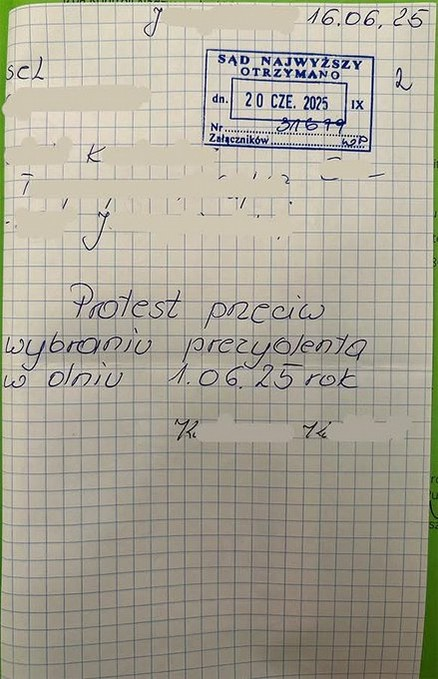 J 16.06.25
seL
SĄD NAJWYŻSZY
OTRZYMANO
2
dn. 20 CZE. 2025 IX
Nr
Załączników
K
T
J
Protest przeciw
wybraniu prezydenta
w dniu 1.06.25 rok
K K